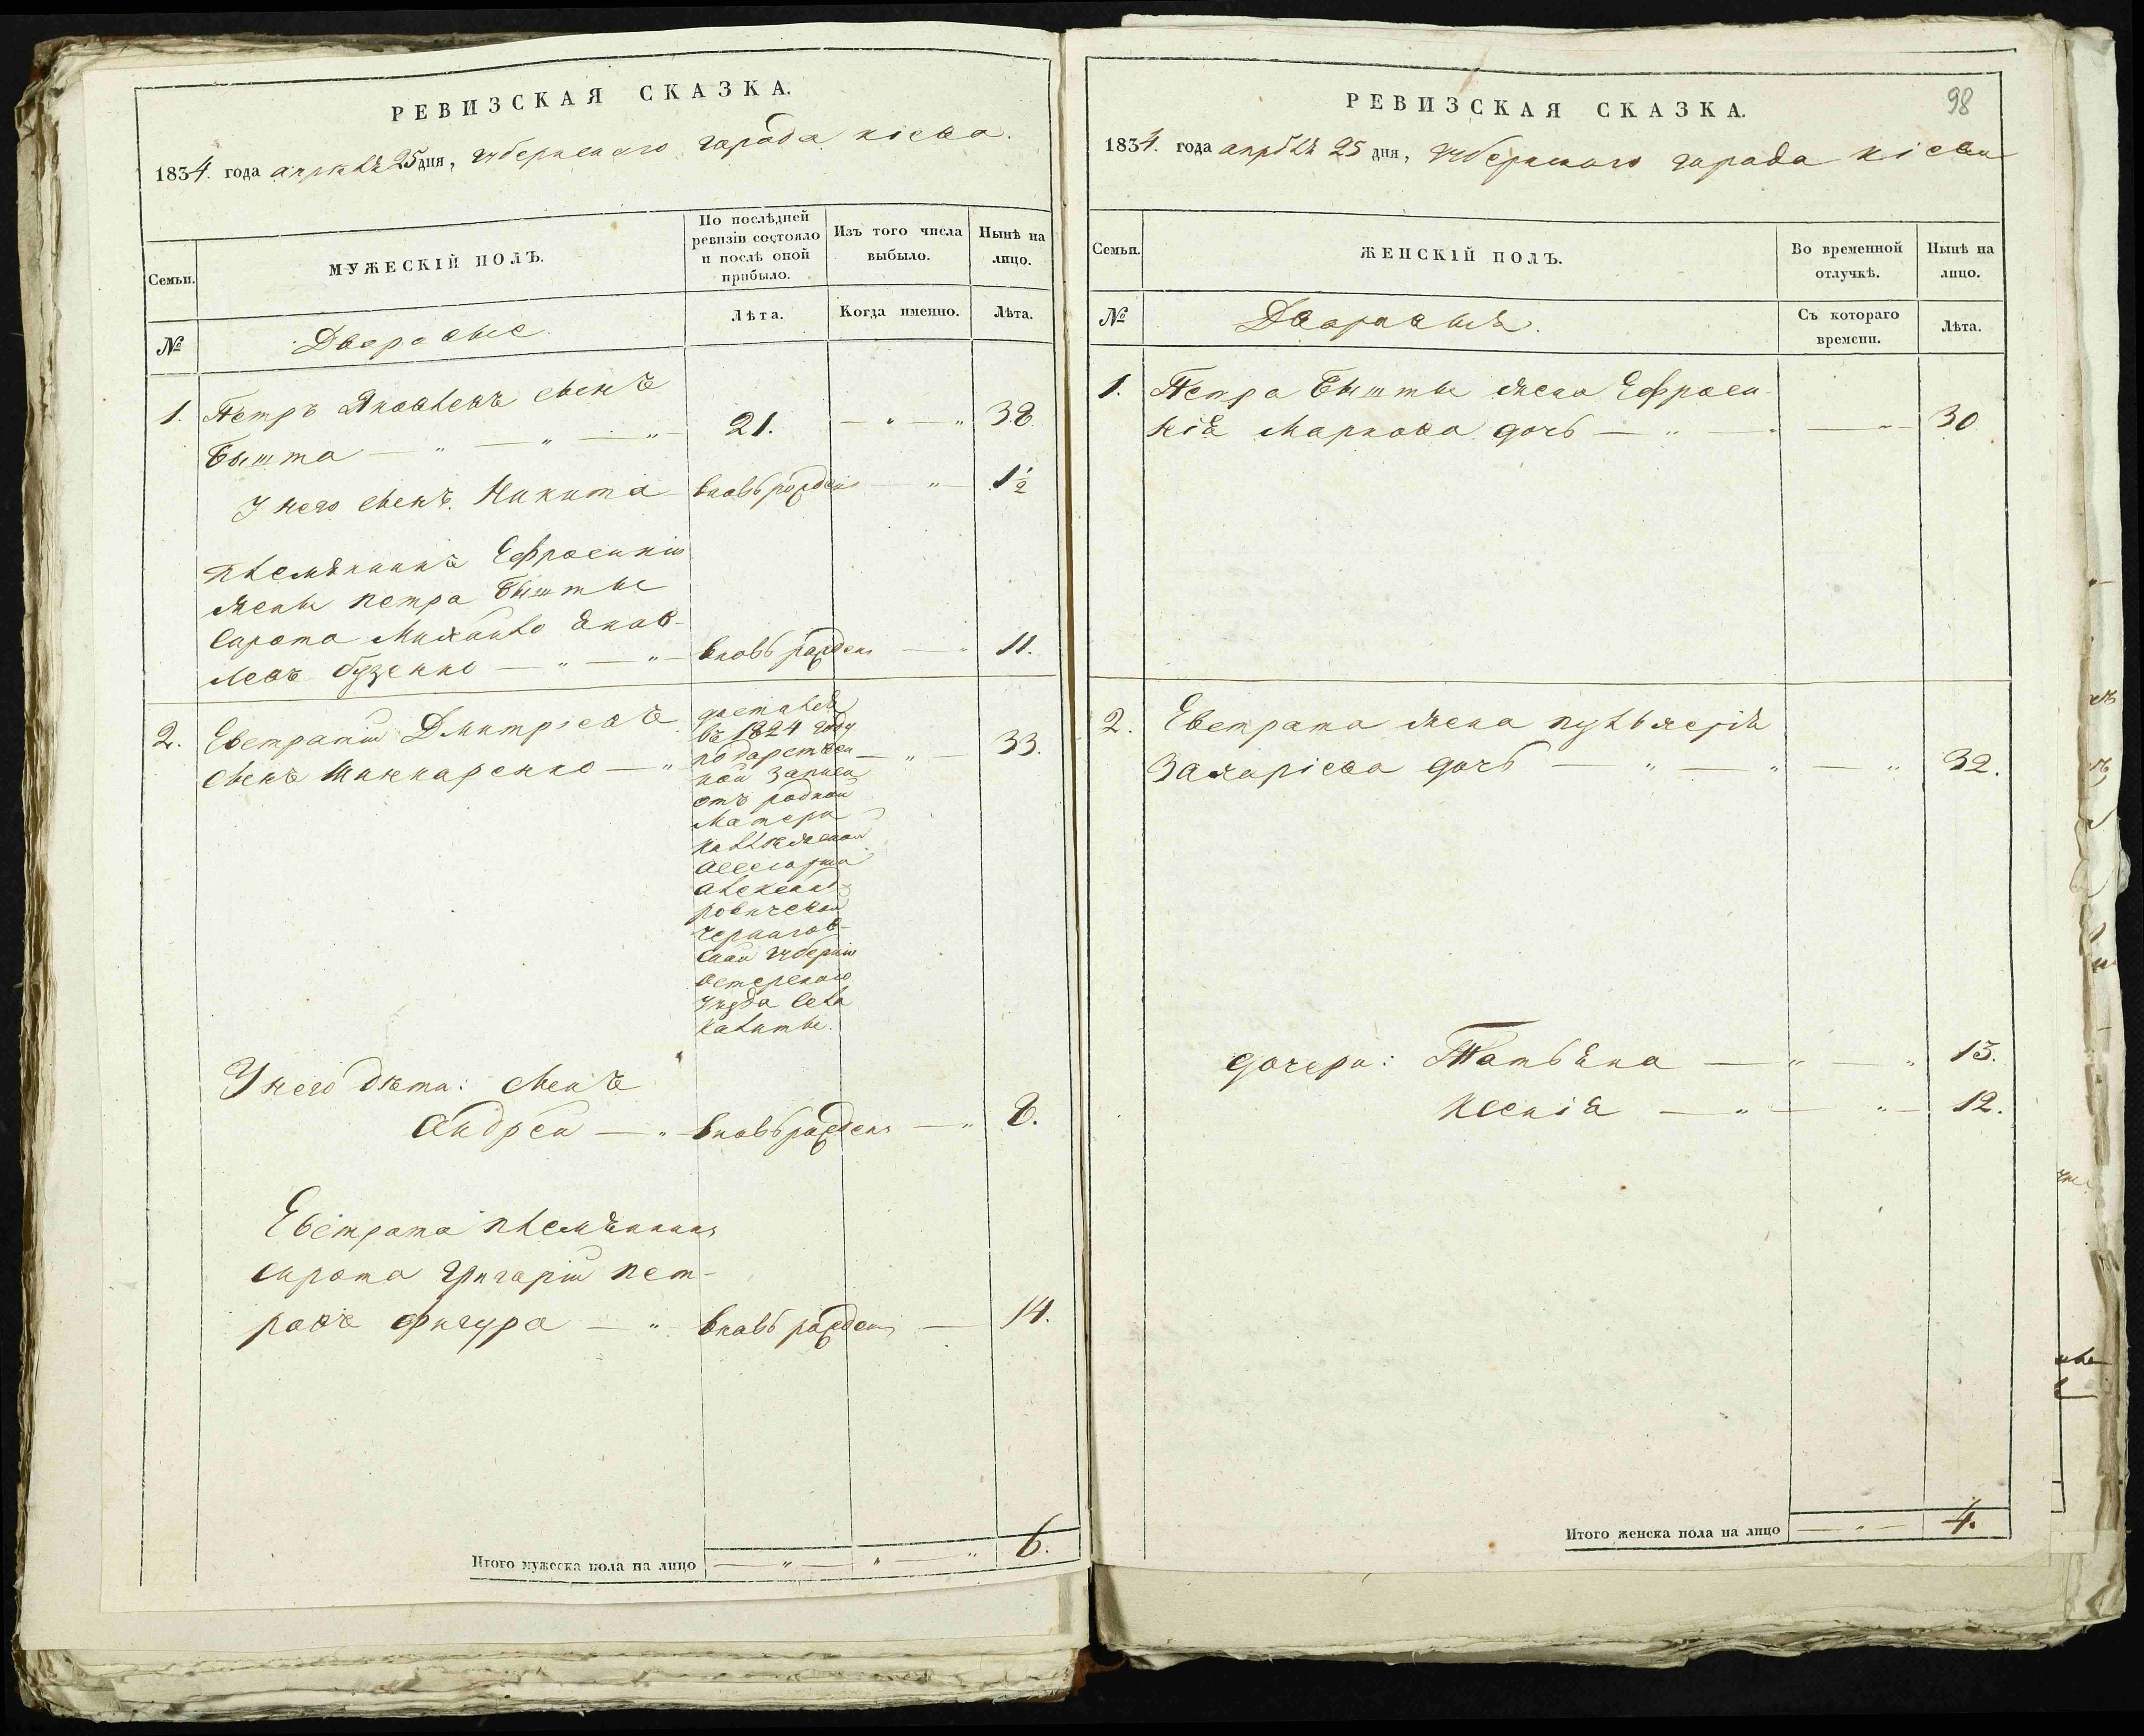 РЕВИЗСКАЯ СКАЗКА.
1834. года апрѣля 25 дня, губернского города кіева.
Семьи.
МУЖЕСКІЙ ПОЛЪ.
По послѣдней ревизіи состояло и послѣ оной прибыло.
Изъ того числа выбыло.
Нынѣ на лицо.
№
Дворовые
Лѣта.
Когда именно.
Лѣта.
1. Петръ Яковлевъ сынъ
Бышта — " — " — " 21. — " — " 38.
У него сынъ Никита вновь рожденъ — " — 1½
племянникъ Ефросиніи
жены петра Бышты
Сирота Михайло Яков-
левъ бузенко — " — " — вновь рожденъ — " 11.
2. Евстратій Дмитріевъ
сынъ Шинкаренко — " — " — 33.
достался
въ 1824 году
по дарствен
ной записи
отъ родной
Матери
коллежской
Ассесорши
Александ-
ровичевой
чернигов-
ской губерніи
остерского
уѣзда села
калиты.
У него дѣти: сынъ
Андрей — " — вновь рожденъ — " 8.
Евстрата племянникъ
Сирота григорій пет-
ровъ фигура — " — вновь рожденъ — 14.
Итого мужеска пола на лицо — " — " — " 6.
98
РЕВИЗСКАЯ СКАЗКА.
1834. года апрѣля 25 дня, губернского города кіева
Семьи.
ЖЕНСКІЙ ПОЛЪ.
Во временной отлучкѣ.
Нынѣ на лицо.
№
Дворовыя.
Съ котораго времени.
Лѣта.
1. Петра Бышты жена Ефроси-
нія Маркова дочь — " — " — " — 30
2. Евстрата жена пульхерія
Захаріева дочь — " — " — " 32.
дочери: Татьяна — " — " 13.
Ксенія — " — " — 12.
Итого женска пола на лицо — " — 4.